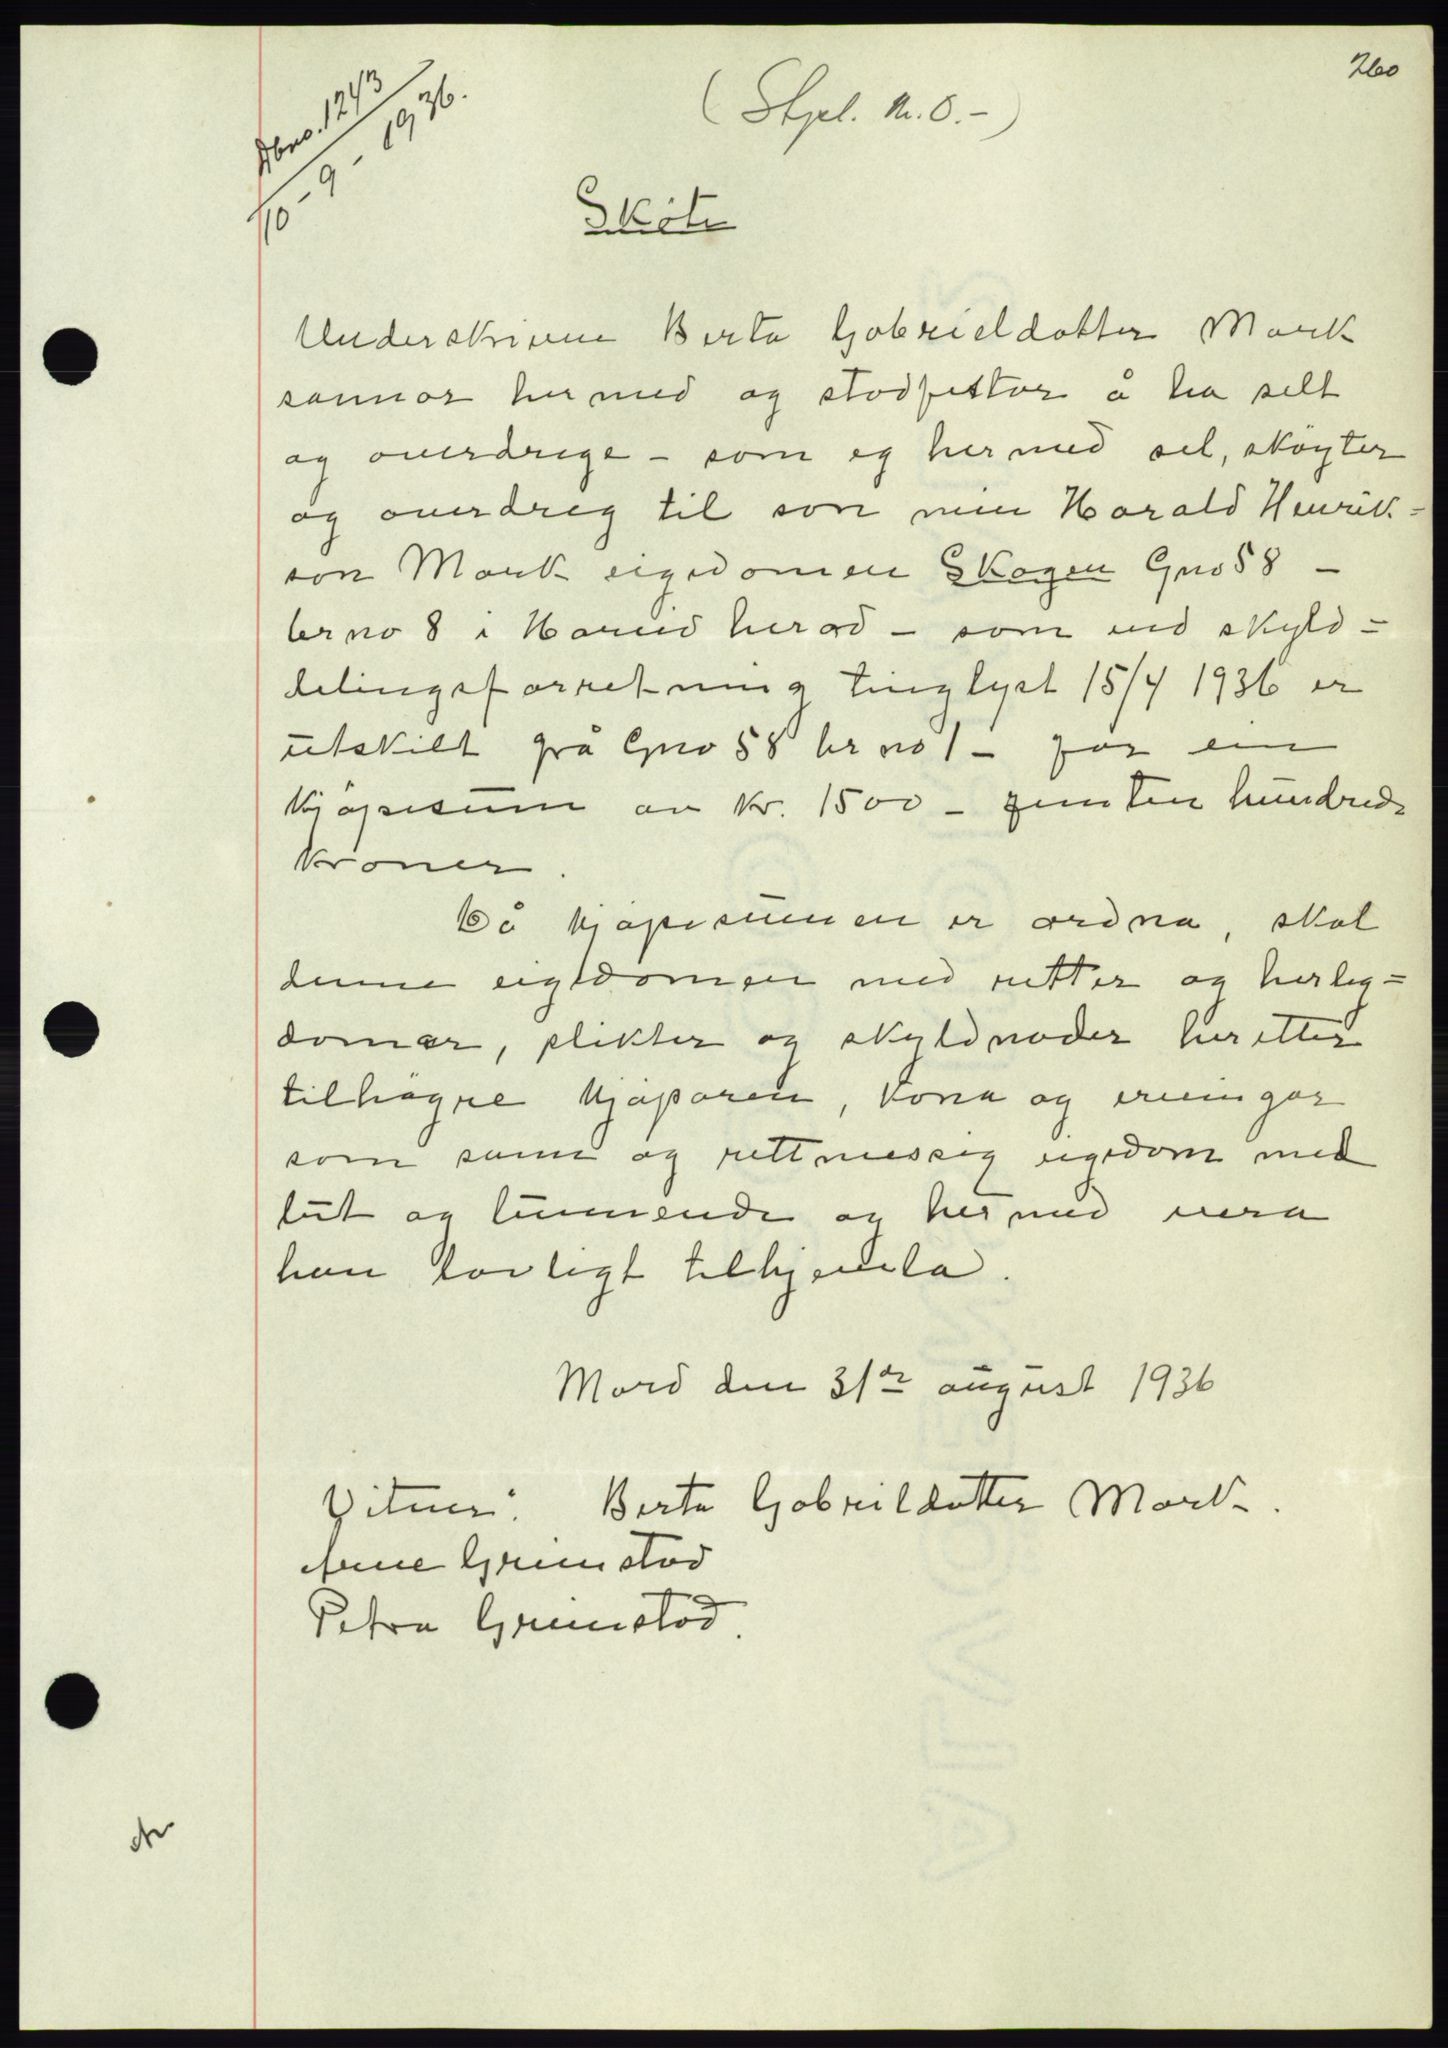 260
Dbno. 1243
10-9-1936.
(Stpl. kr. 8.-)
Skøte
Underskrivne Berta Gabrieldotter Mork
sannar hermed og stadfestar å ha selt
og overdrege - som eg hermed sel, skøyter
og overdreg til son min Harald Henrik=
son Mork eigedomen Skogen Gno 58 -
brno 8 i Hareid herad - som ved skyld=
delingsforretning tinglyst 15/4 1936 er
utskilt frå Gno 58 brno 1 - for ein
kjøpesum av kr. 1500 - femten hundrede
kroner.
Då kjøpesummen er ordna, skal
denne eigedomen med retter og herleg=
domar, plikter og skyldnader heretter
tilhøyre kjøparen, kona og ervingar
som sann og rettmessig eigedom med
lut og lunnende og hermed vera
han lovligt tilhjemla.
Mord den 31te august 1936
Vitner: Berta Gabrieldotter Mork.
Arne Grimstad
Petra Grimstad.